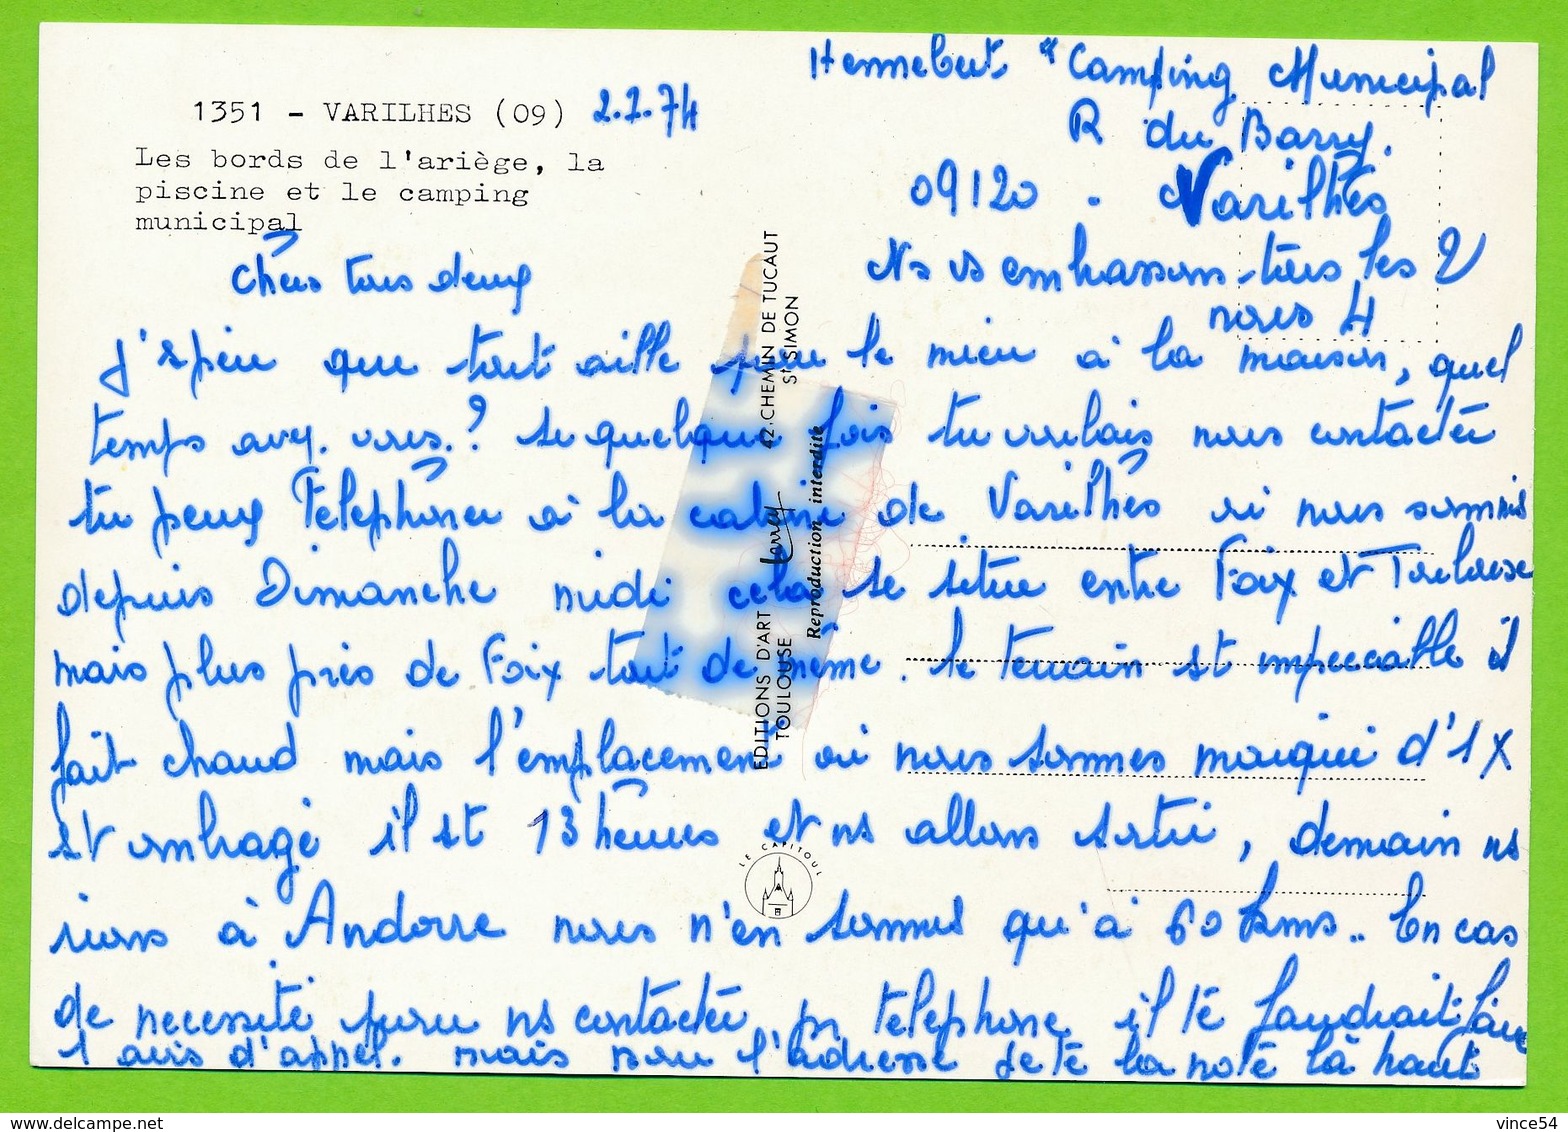 Hennebert "Camping Municipal
R du Barry.
09120 - Varilhes
1351 - VARILHES (09) 2.7.74
Les bords de l'ariège, la
piscine et le camping
municipal
Chers tous deux
Ns vs embrassons tous les 2
nous 4
J'spère que tout aille pour le mieu à la maison, quel
temps avez. vous.? Si quelque fois tu voulais nous contacter
tu peux Téléphoner à la cabine de Varilhès où nous sommes
depuis Dimanche midi cela se situe entre Foix et Toulouse
mais plus près de Foix tout de même. le terrain st impeccable il
fait chaud mais l'emplacement où nous sommes marqué d'1 X
st ombragé il st 13 heures et ns allons sortir, demain ns
irons à Andorre nous n'en sommes qu'à 60 kms.. En cas
de nécessité pour ns contacter, pr téléphone il te faudrait faire
1 avis d'appel. mais pour l'adresse je te la note là haut
EDITIONS D'ART Larrey 42, CHEMIN DE TUCAUT
TOULOUSE St SIMON
Reproduction interdite
LE CAPITOUL
https://www.delcampe.net
vince54